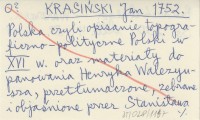 KRASIŃSKI Jan 1752.
Polska czyli opisanie topogra-
ficzno-polityczne Polski w
XVI w. oraz materiały do
panowania Henryka Walezyu-
sza, przetłumaczone, zebrane
i objaśnione przez Stanisława